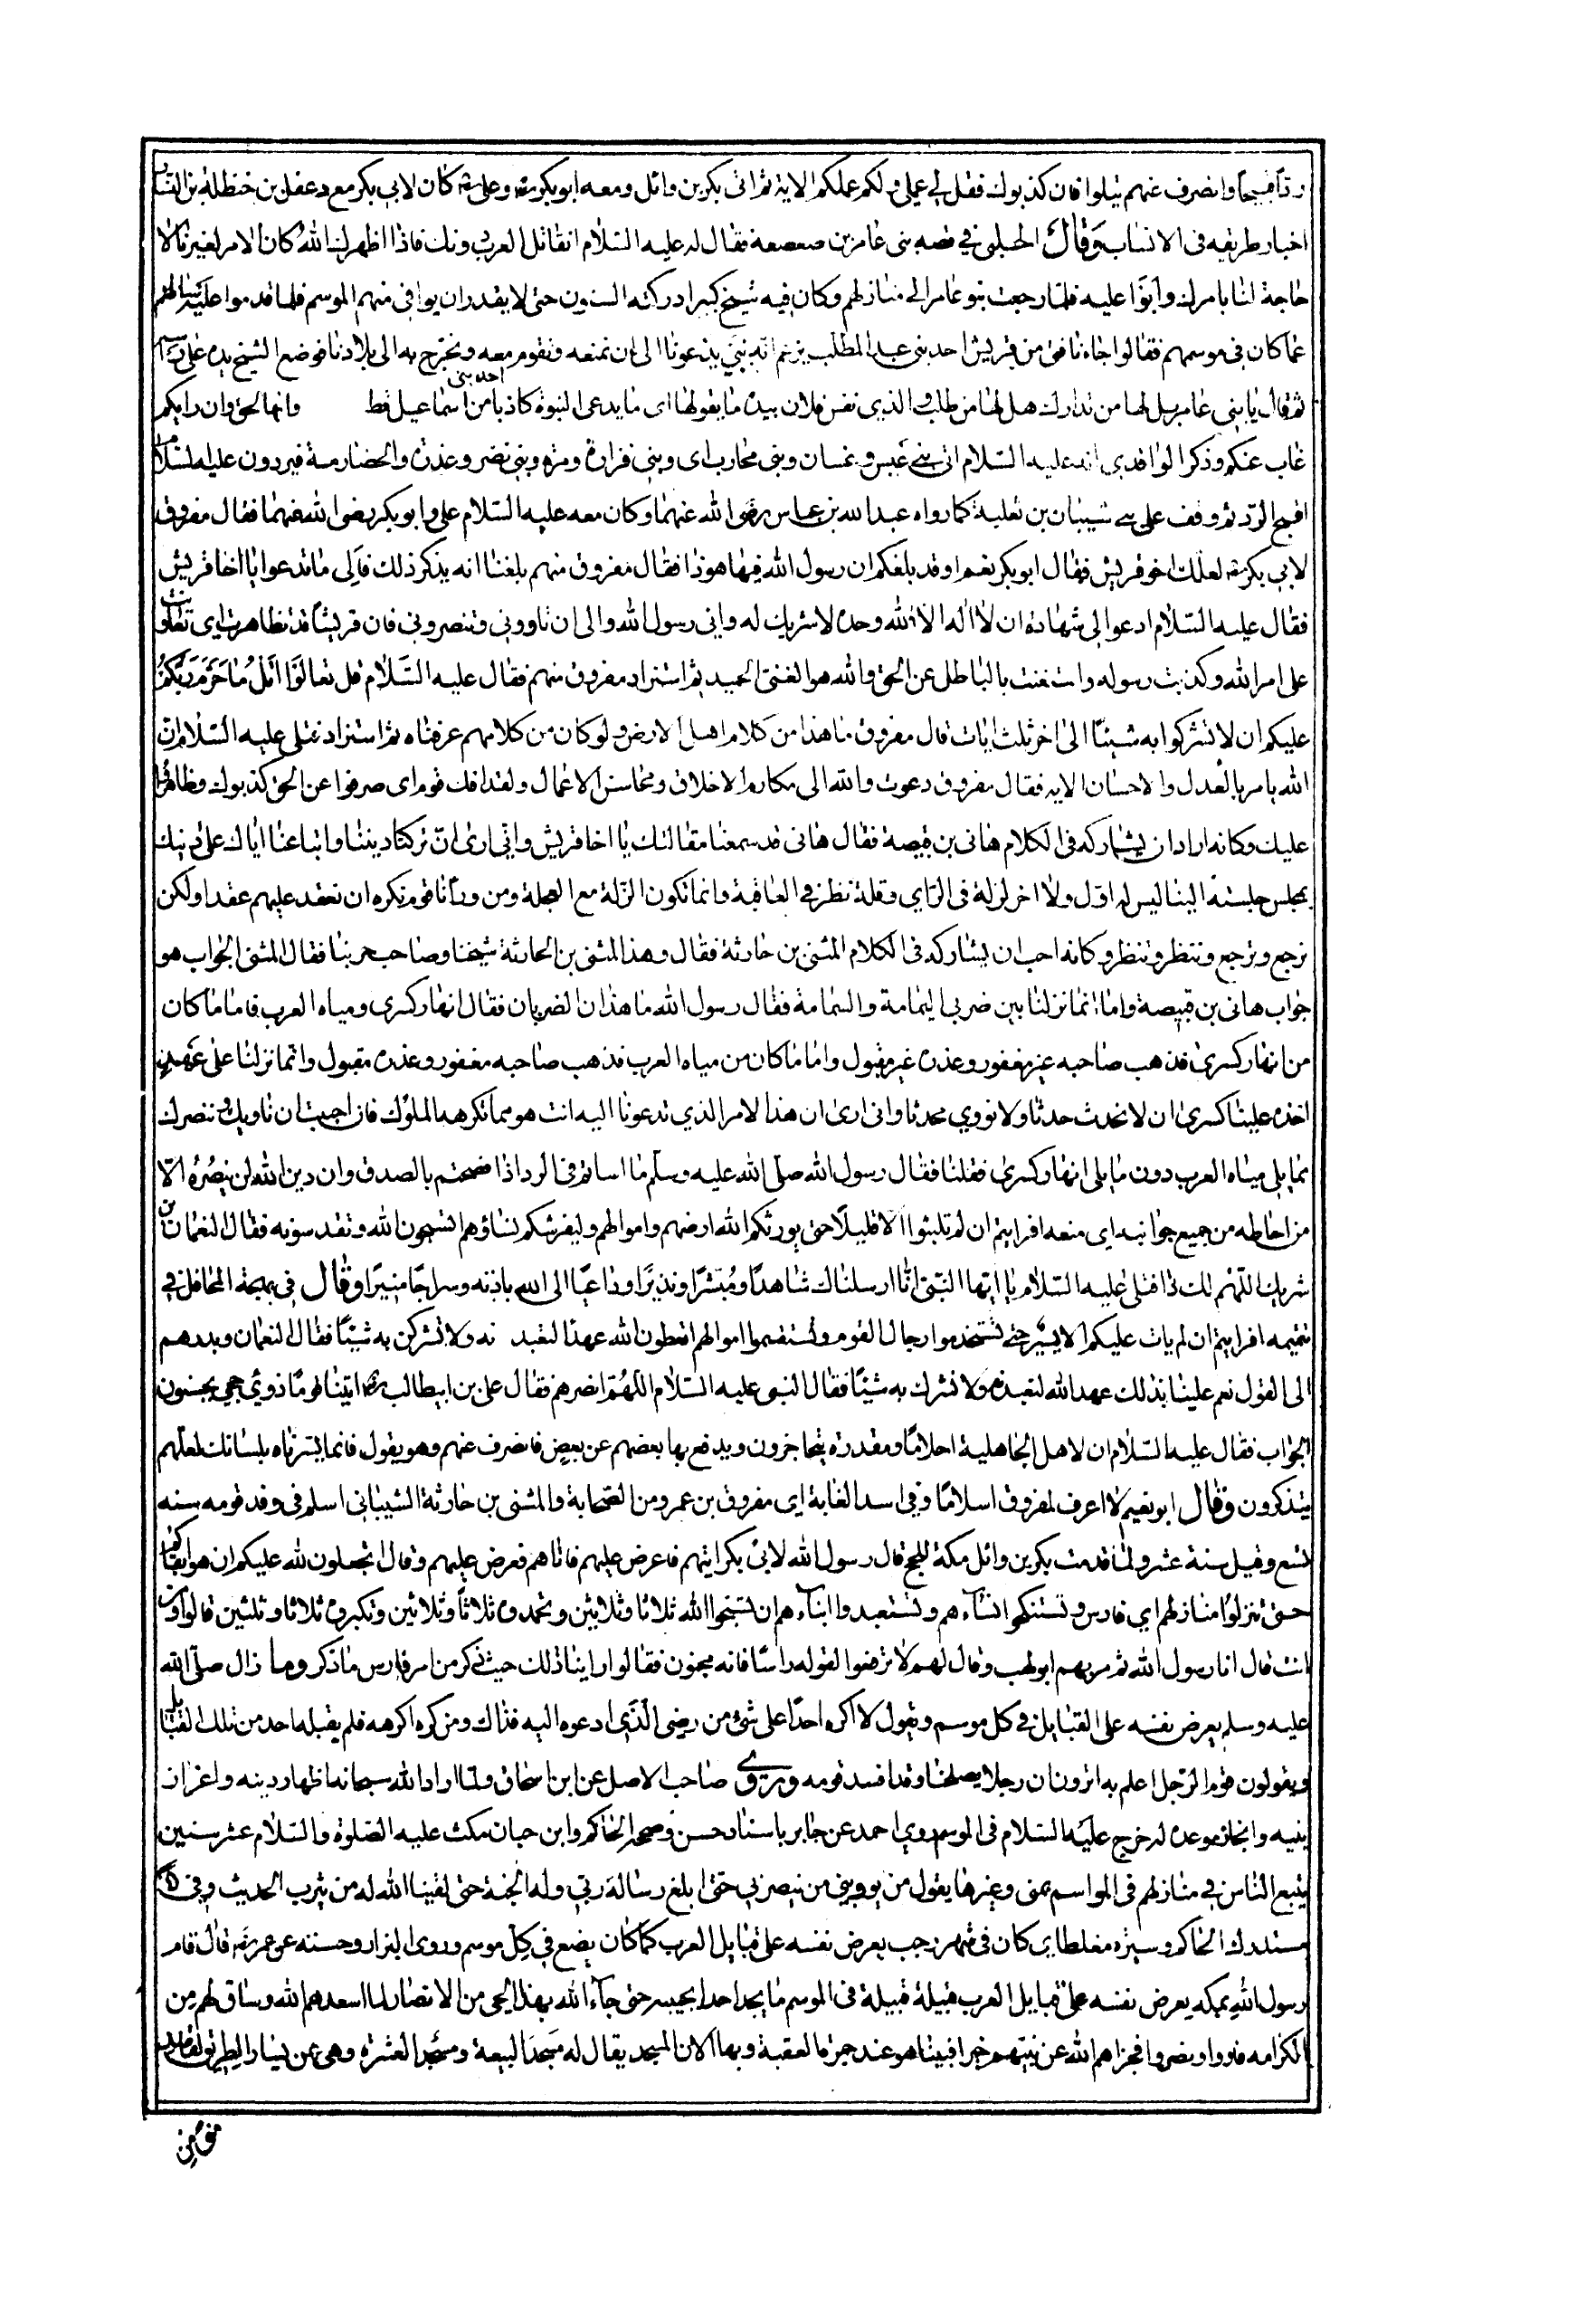 ردّا قبيحا وانصرف عنهم يتلوا فان كذبوك فقل لي عملي ولكم عملكم الاية ثم اتى بكر بن وائل ومعه ابوبكر رضه وعلي رضه كان لابي بكر مع دغفل بن حنظلة بن النساب
اخبار طريفه في الانساب وقال الحلبي في قصه بني عامر بن صعصعة فقال له عليه السّلام انقاتل العرب دونك فاذا اظهرك الله كان الامر لغيرنا لا
حاجة لنا بامرك وأبَوْا عليه فلمّا رجعت بنو عامر الى منازلهم وكان فيه شيخ كبير ادركته السنون حتى لا يقدر ان يوافي منهم الموسم فلما قدموا عليه سالهم
عما كان في موسمهم فقالوا جاءنا فتى من قريش احد بني عبد المطلب يزعم انّه نبيّ يدعونا الى ان نمنعه ونقوم معه ونخرج به الى بلادنا فوضع الشيخ يده على راسه
ثم قال يا بني عامر هل لها من تدارك هل لها من مطلب والذي نفس فلان بيده ما يقولها اى ما يدعى النبوة كاذبا من احد بني اسماعيل قط وانها لحق وان رايكم
غاب عنكم وذكر الواقدي انه عليه السّلام اتى بني عبس وغسان وبني محارب اى وبني فزارة ومرة وبني نضر وعذرة والحضارمة فيردون عليه السلام
اقبح الردّ ثم وقف على بني شيبان بن ثعلبة كما رواه عبد الله بن عباس رضى الله عنهما وكان معه عليه السّلام على وابو بكر رضى الله عنهما فقال مفروق
لابي بكر رضه لعلك اخو قريش فقال ابوبكر نعم او قد بلغكم ان رسول الله فها هو ذا فقال مفروق منهم بلغنا انه يذكر ذلك فالى ما تدعوا يا اخا قريش
فقال عليه السّلام ادعوا الى شهادة ان لا اله الا الله وحده لا شريك له وانى رسول الله والى ان تاووني وتنصروني فان قريشا قد تظاهرت اى تعاونت
على امر الله وكذبت رسوله واستغنت بالباطل عن الحق والله هو الغنىّ الحميد ثم استزاد مفروق منهم فقال عليه السّلام قل تعالَوْا اتل ما حرّم ربّكم
عليكم ان لا تشركوا به شيئًا الى اخر ثلث ايات قال مفروق ما هذا من كلام اهل الارض ولو كان من كلامهم عرفناه ثم استزاد فتلى عليه السّلام انّ
الله يامر بالعدل والاحسان الايه فقال مفروق دعوت والله الى مكارم الاخلاق ومحاسن الاعمال ولقد افك قوم اى صرفوا عن الحق كذبوك وظاهروا
عليك وكانه اراد ان يشاركه في الكلام هانى بن قبيصة فقال هانى قد سمعنا مقالتك يا اخا قريش وانّي ارى انّ تركنا ديننا واتباعنا اياك على دينك
بمجلس جلسته الينا ليس له اوّل ولا اخر لزلة في الرّاي وقلة نظر في العاقبة وانما تكون الزلة مع العجلة ومن ورائنا قوم نكره ان نعقد عليهم عقدا ولكن
نرجع وترجع وننتظر وتنظر وكانه احب ان يشاركه في الكلام المثنى بن حارثة فقال وهذا المثنى بن الحارثة شيخنا وصاحب حربنا فقال المثنى الجواب هو
جواب هانى بن قبيصة واما انما نزلنا بين ضربي اليمامة والسمامة فقال رسول الله ما هذان الضربان فقال انهار كسرى ومياه العرب فاما ما كان
من انهار كسرى فذهب صاحبه غير مغفور وعذره غير مقبول واما ما كان من مياه العرب فذهب صاحبه مغفور وعذره مقبول وانما نزلنا على عهد
اخذه علينا كسرى ان لا نحدث حدثا ولا نووي محدثا وانى ارى ان هذا الامر الذي تدعونا اليه انت هو مما تكرهه الملوك فان احببت ان ناويك وننصرك
مما يلي مياه العرب دون ما يلي انهار كسرى فعلنا فقال رسول الله صلّى الله عليه وسلّم ما اساتم في الرد اذا فصحتم بالصدق وان دين الله لن ينصره الّا
من احاطه من جميع جوانبه اي منعه افرايتم ان لم تلبثوا الا قليلًا حتى يورثكم الله ارضهم واموالهم وليفرشكم نساؤهم اتسبحون الله وتقدسونه فقال النعمان بن
شريك اللّهُم لك ذا فتلى عليه السّلام يا ايّها النّبيّ انّا ارسلناك شاهدًا ومبشّرًا ونذيرًا وداعيًا الى الله باذنه وسراجًا منيرًا وقال في بهجة المحافل في
تتميمه افرايتم ان لم يات عليكم الا يسير حتى تستخدموا رجال القوم وتستقسموا اموالهم اتعطون الله عهدًا لتعبد نه ولا تشركن به شيئًا فقال النعمان وبدرهم
الى القول نعم علينا بذلك عهد الله لنعبده ولا نشرك به شيئًا فقال النبي عليه السّلام اللّهُمّ انصرهم فقال على بن ابيطالب رضه اتينا قومًا ذوي حجى يحسنون
الجواب فقال عليه السّلام ان لاهل الجاهلية احلامًا ومقدرة يتحاجزون ويدفع بها بعضهم عن بعض فانصرف عنهم وهو يقول فانما يسّرناه بلسانك لعلّهم
يتذكرون وقال ابو نعيم لا اعرف لمفروق اسلامًا وفي اسد الغابة اى مفروق بن عمرو من الصّحابة والمثنى بن حارثة الشيباني اسلم في وفد قومه سنه
تسع وقيل سنة عشر ولمّا قدمت بكر بن وائل مكة للحج قال رسول الله لابي بكر ايتهم فاعرض عليهم فاتاهم فعرض عليهم وقال اتجعلون لله عليكم ان هو ابقاكم
حتى تنزلوا منازلهم اي فارس وتستنكحوا نساءهم وتستعبدوا ابناءهم ان تسبّحوا الله ثلاثا وثلاثين وتحمدوه ثلاثًا وثلاثين وتكبروه ثلاثا وثلثين قالوا ومن
انت قال انا رسول الله ثم مر بهم ابو لهب وقال لهم لا ترفعوا لقوله راسًا فانه مجنون فقالوا راينا ذلك حيث ذكر من امر فارس ما ذكر وما زال صلّى الله
عليه وسلم يعرض نفسه على القبايل في كل موسم ويقول لا اكره احدًا على شئ من رضي الّذي ادعوه اليه فذاك ومن كره اكرهه فلم يقبله احد من تلك القبايل
ويقولون قوم الرّجل اعلم به اترون ان رجلا يصلحنا وقد افسد قومه وروى صاحب الاصل عن ابن اسحاق ولمّا اراد الله سبحانه اظهار دينه واعزاز
نبيه وانجاز موعده له خرج عليه السّلام في الموسم روي احمد عن جابر باسناد حسن وصححه الحاكم وابن حبان مكث عليه الصّلوة والسّلام عشر سنين
يتبع النّاس في منازلهم في المواسم بمنى وغيرها يقول من يوويني من ينصرني حتى ابلغ رسالة ربّي وله الجنة حتى لقينا الله له من يثرب الحديث وفي
مستدرك الحاكم وسيرة مغلطاى كان في شهر رجب يعرض نفسه على قبايل العرب كما كان يضع في كل موسم وروى البزار وحسنه عن عمر رضه قال قام
رسول الله بمكه يعرض نفسه على قبايل العرب قبيلة قبيلة في الموسم ما يجد احدا يجيبه حتى جاء الله بهذا الحي من الانصار لما اسعدهم الله وساق لهم من
الكرامه فاووا ونصروا فجزاهم الله عن نبيّهم خيرا فبينا هو عند جمرة العقبة وبها الان المسجد يقال له مسجد البيعة ومسجد العشرة وهى عن يسار الطريق لقاصد
منى من